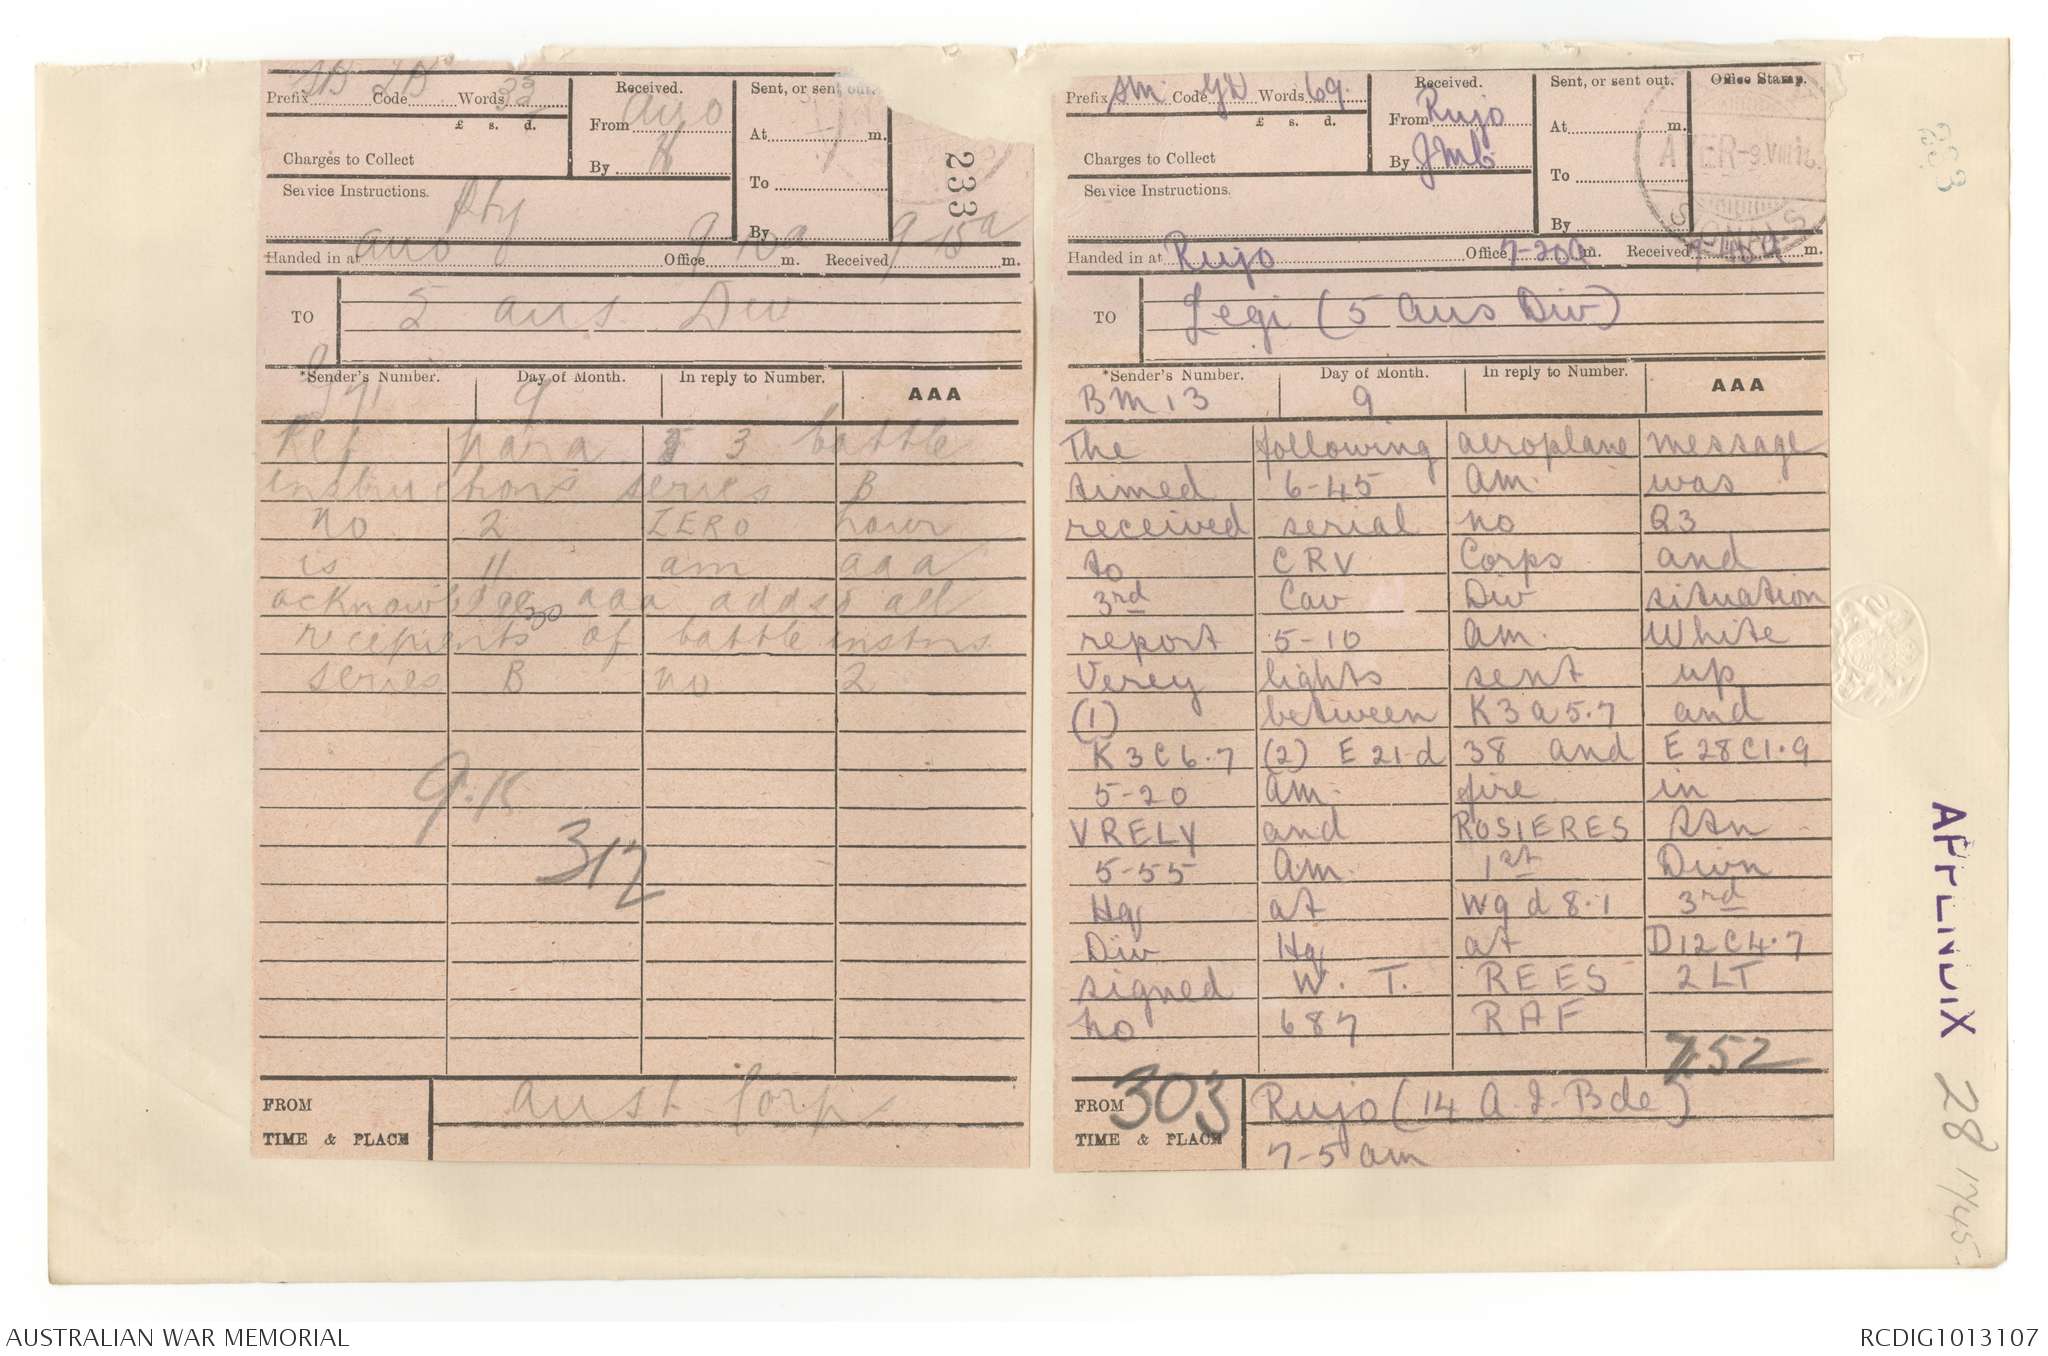 Prefix SB Code DB Words 33
£ s. d.
Charges to Collect
Received.
From auo
By H
Sent, or sent out.
At m.
To
By
233
Service Instructions.
Pty
Handed in at auo Office 9 10a m. Received 9 15a m.
TO 5 aus Div
*Sender's Number. Day of Month. In reply to Number. AAA
9
Ref para 3 battle
instructions series B
no 2 ZERO hour
is 11 am aaa
acknowledge aaa addsd all
recipients of battle instns
series B no 2
9.15
312
FROM Aust Corps
TIME & PLACE
Prefix SM Code YD Words 69.
£ s. d.
Charges to Collect
Received.
From Rujo
By JMC
Sent, or sent out.
At m.
To
By
Office Stamp.
SIGNALS
Service Instructions.
Handed in at Rujo Office 7-20a m. Received m.
TO Legi (5 Aus Div)
*Sender's Number. Day of Month. In reply to Number. AAA
BM 13 9
The following aeroplane message
timed 6-45 am. was
received serial no Q3
to CRV Corps and
3rd Cav Div situation
report 5-10 am. White
Verey lights sent up
(1) between K3a5.7 and
K3C6.7 (2) E21d 38 and E28C1.9
5-20 am. fire in
VRELY and ROSIERES Stn
5-55 am. 1st Divn
Hq at W9d8.1 3rd
Div Hq at D12C4.7
signed W. T. REES 2LT
no 687 RAF
752
303
FROM Rujo (14 A.I. Bde)
TIME & PLACE 7-5 am
APPENDIX 28
1745
AUSTRALIAN WAR MEMORIAL
RCDIG1013107